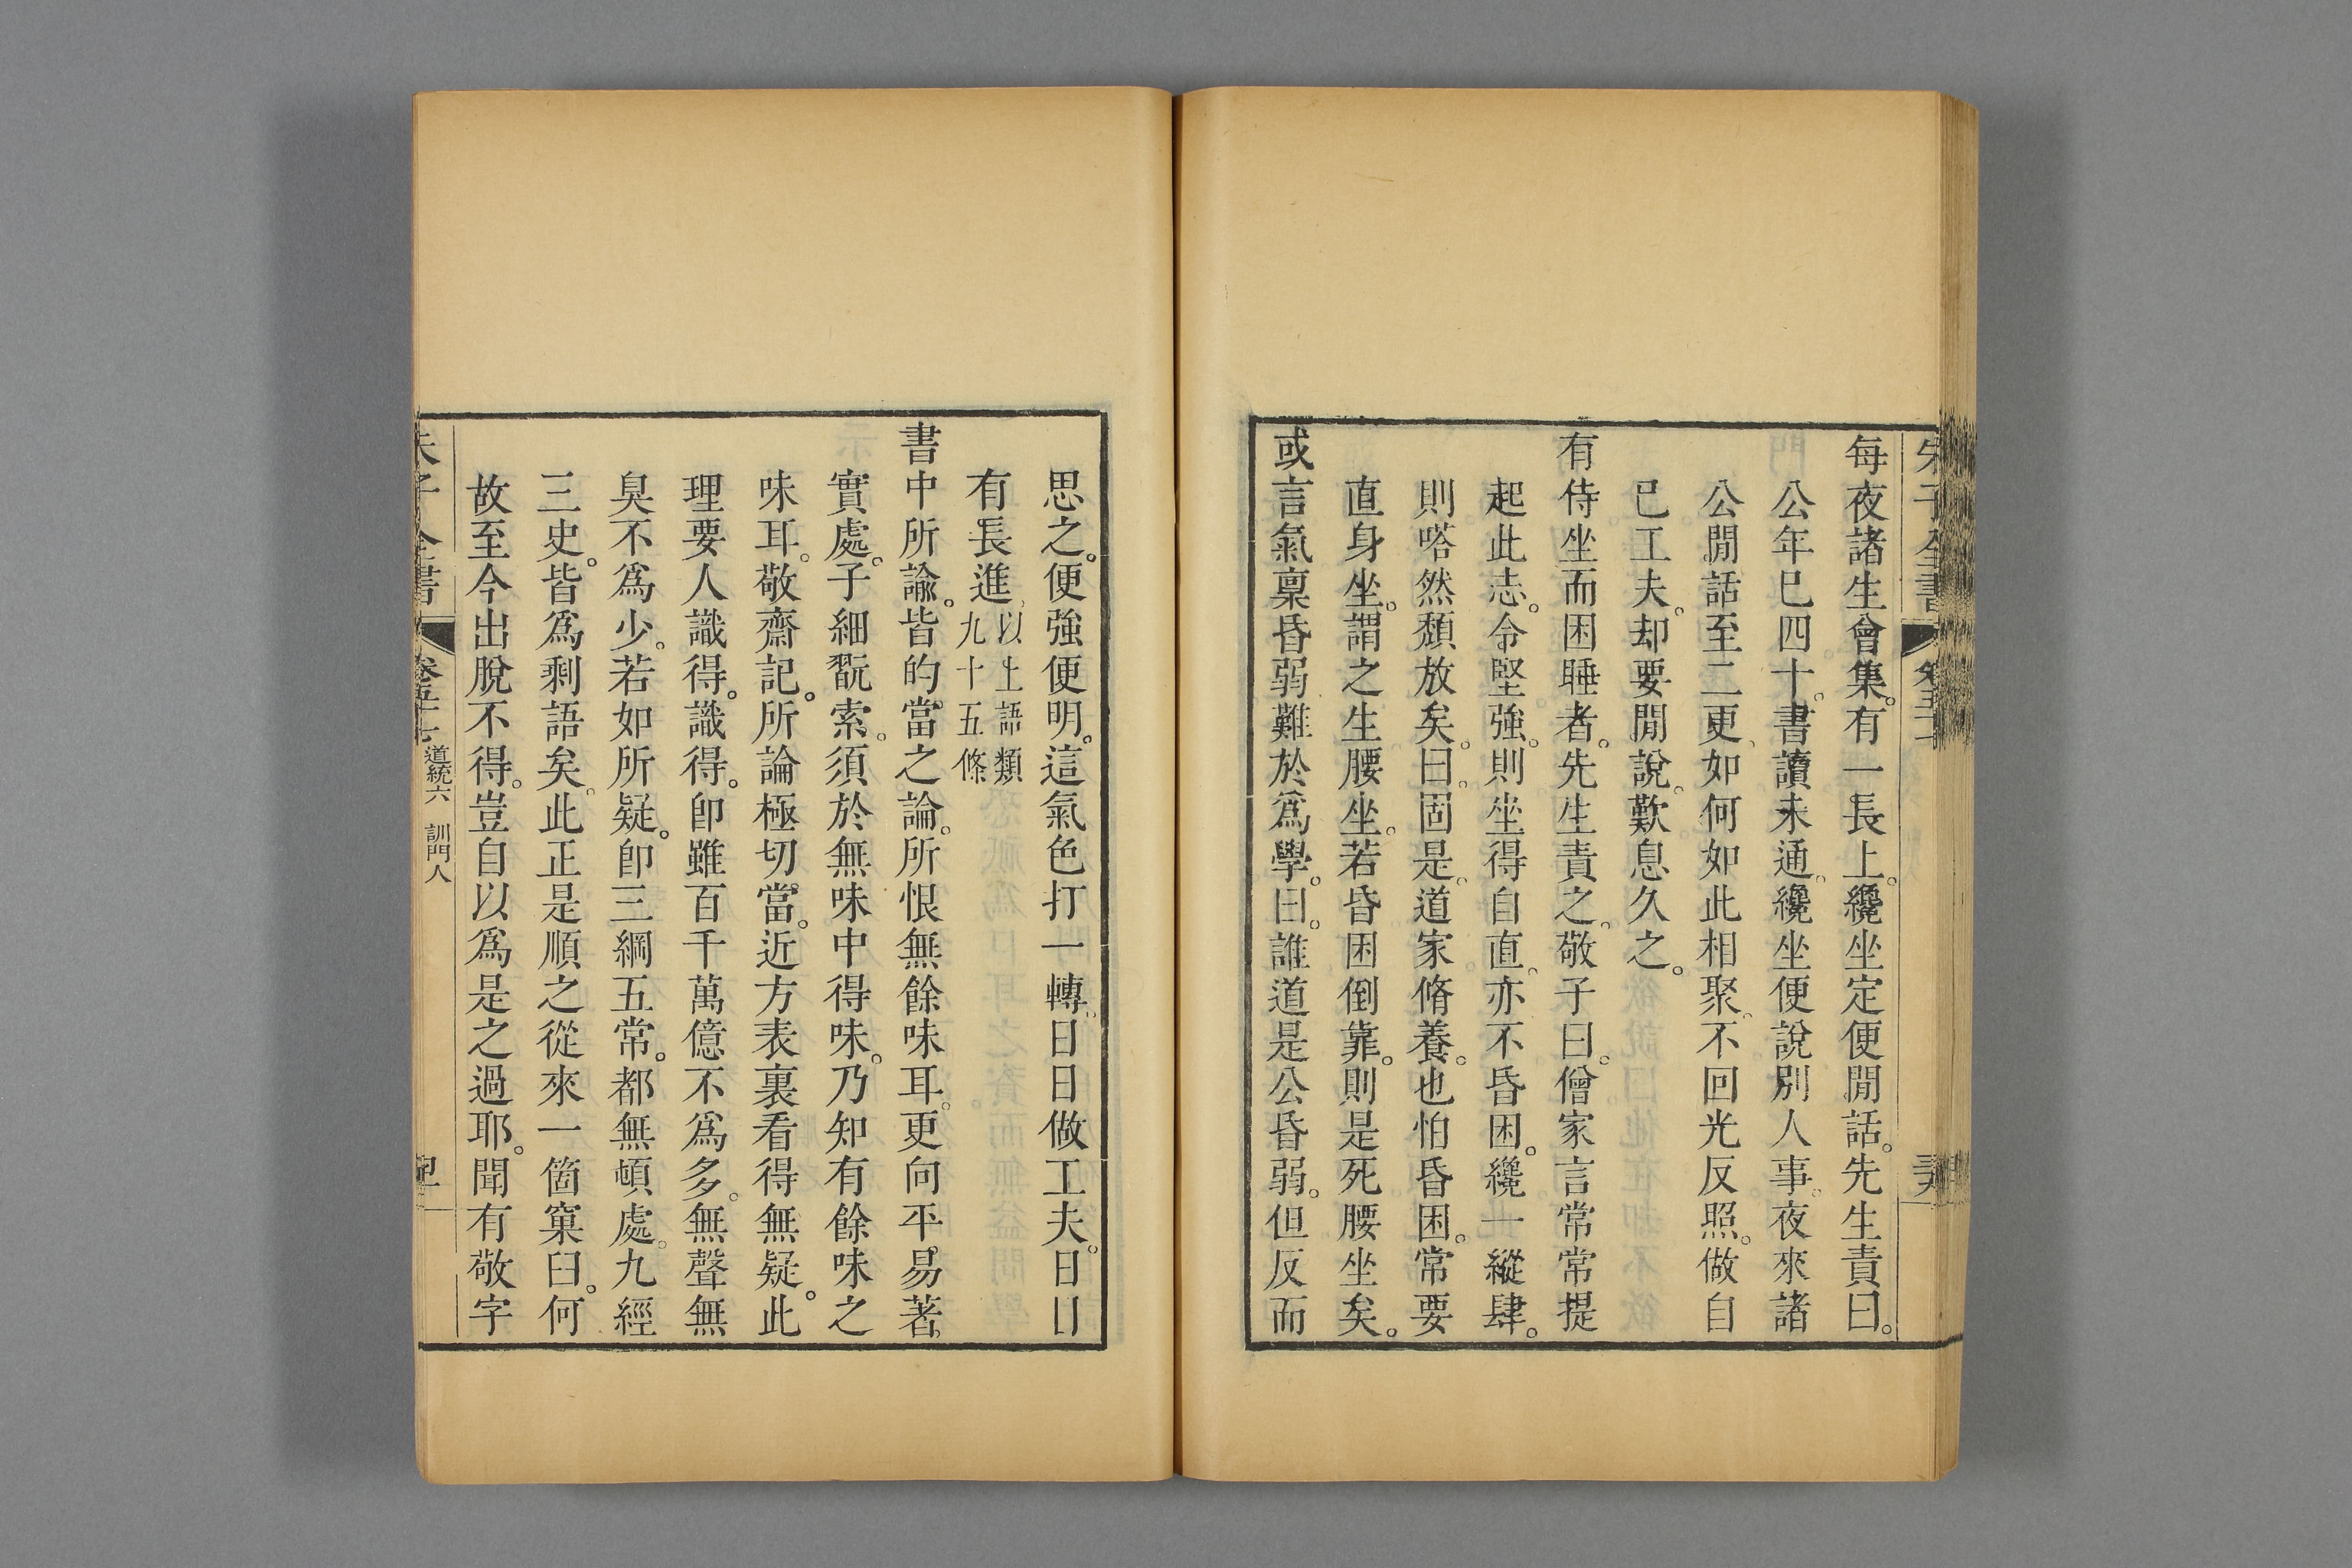 每夜諸生會集。有一長上。纔坐定便閒話。先生責曰。
公年巳四十。書讀未通。纔坐便說別人事。夜來諸
公閒話至二更。如何如此相聚。不回光反照。做自
巳工夫。却要閒說。歎息久之。
有侍坐而困睡者。先生責之。敬子曰。僧家言常常提
起此志。令堅強。則坐得自直。亦不昏困。纔一縱肆。
則嗒然頽放矣。曰。固是。道家脩養。也怕昏困。常要
直身坐。謂之生腰坐。若昏困倒靠。則是死腰坐矣。
或言氣稟昏弱難於爲學。曰。誰道是公昏弱。但反而
思之。便強便明。這氣色打一轉。日日做工夫。日日
有長進。以上語類九十五條
書中所諭。皆的當之論。所恨無餘味耳。更向平易著
實處。子細翫索。須於無味中得味。乃知有餘味之
味耳。敬齋記。所論極切當。近方表裏看得無疑。此
理要人識得。識得。卽雖百千萬億不爲多。無聲無
臭不爲少。若如所疑。卽三綱五常。都無頓處。九經
三史。皆爲剩語矣。此正是順之從來一箇窠臼。何
故至今出脫不得。豈自以爲是之過耶。聞有敬字
朱子全書 卷五十七 道統六 訓門人